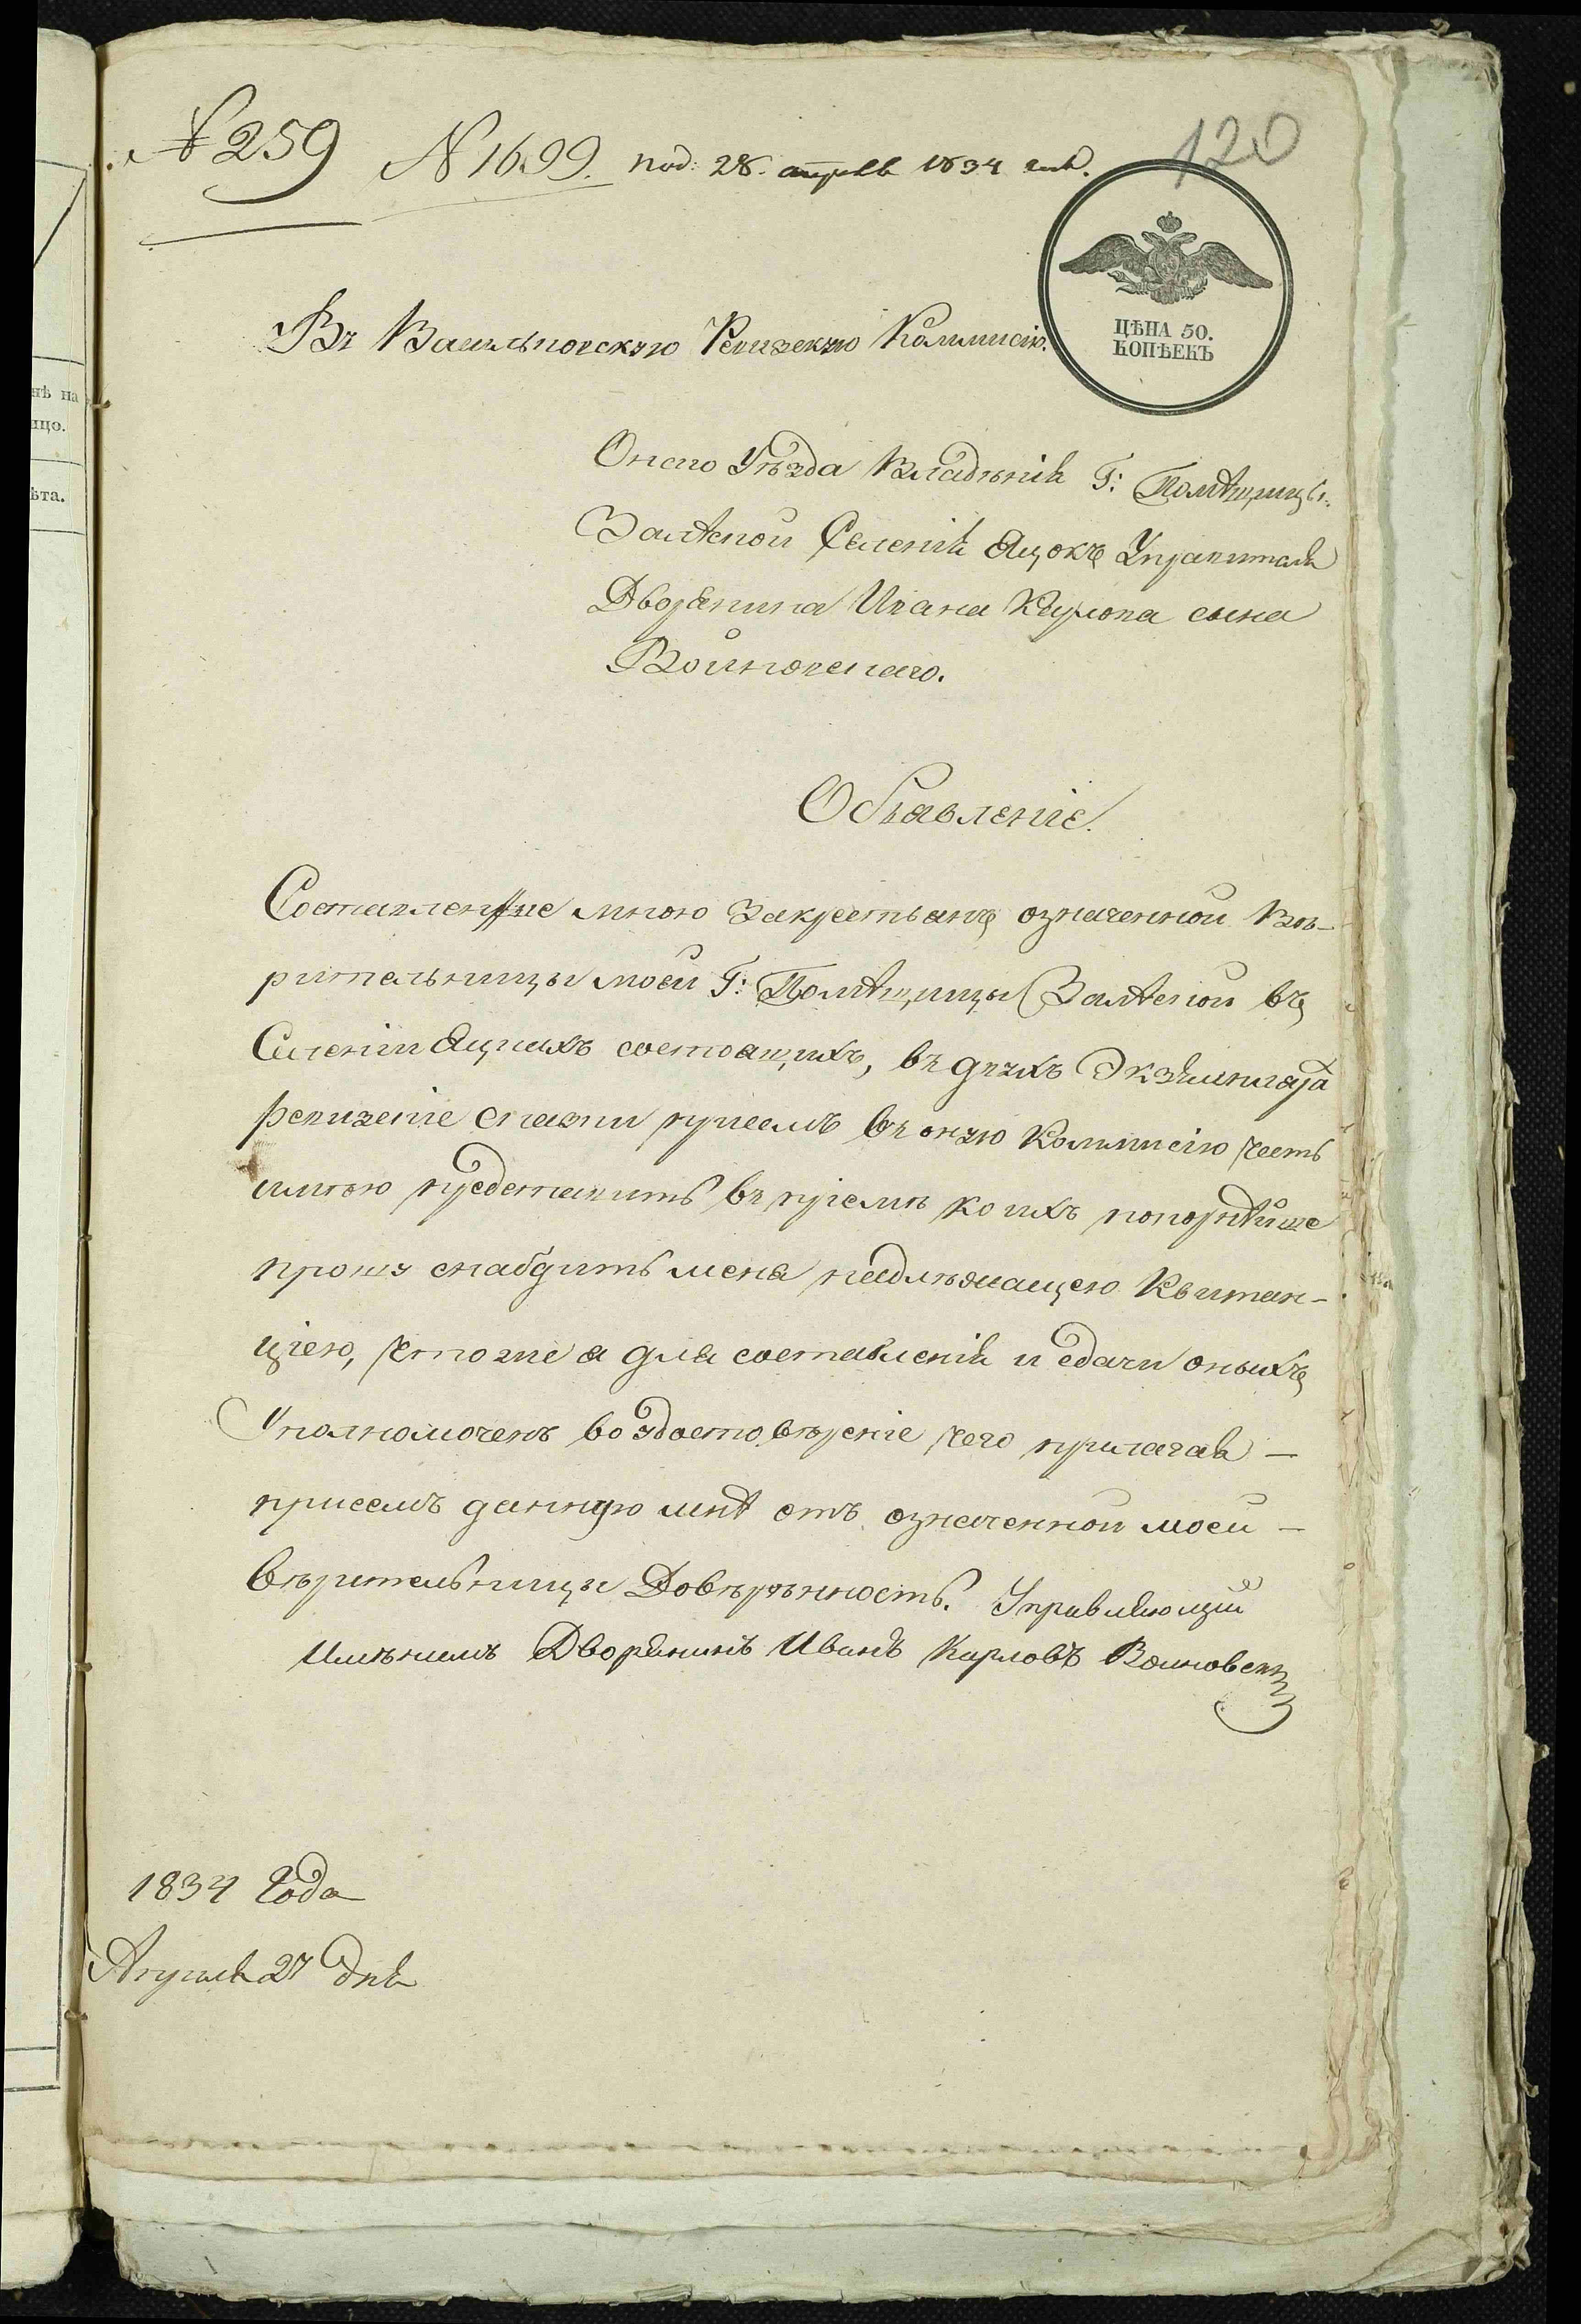 № 259 N 1699. под: 28. апреля 1834 года.
120
ЦѢНА 50.
КОПѢЕКЪ
Въ Васильковскую Ревизскую Коммисію.
Онаго Уѣзда Владѣнія Г: Помѣщицы
Залѣской Селенія Яцокъ Управителя
Дворянина Ивана Карлова сына
Войновскаго.
Объявленіе.
Составленные мною Закрестьянъ означенной Вѣ-
рительницы моей Г: Помѣщицы Залѣской въ
Селеніи Яцкахъ состоящихъ, въ двухъ Экземпляра
ревизскіе сказки присемъ въ оную Коммисію честь
имѣю представить въ пріемѣ коихъ покорнѣйше
прошу снабдить меня надлѣжащею Квитан-
ціею, что же я для составленія и сдачи оныхъ
Уполномоченъ во удостовѣреніе чего прилагая
присемъ данную мнѣ отъ означенной моей
вѣрительницы Довѣрѣнность. Управляющій
Имѣнiемъ Дворянинъ Иванъ Карловъ Войновскій
1834 Года
Апреля 27 дня
нѣ на
ицо.
ѣта.